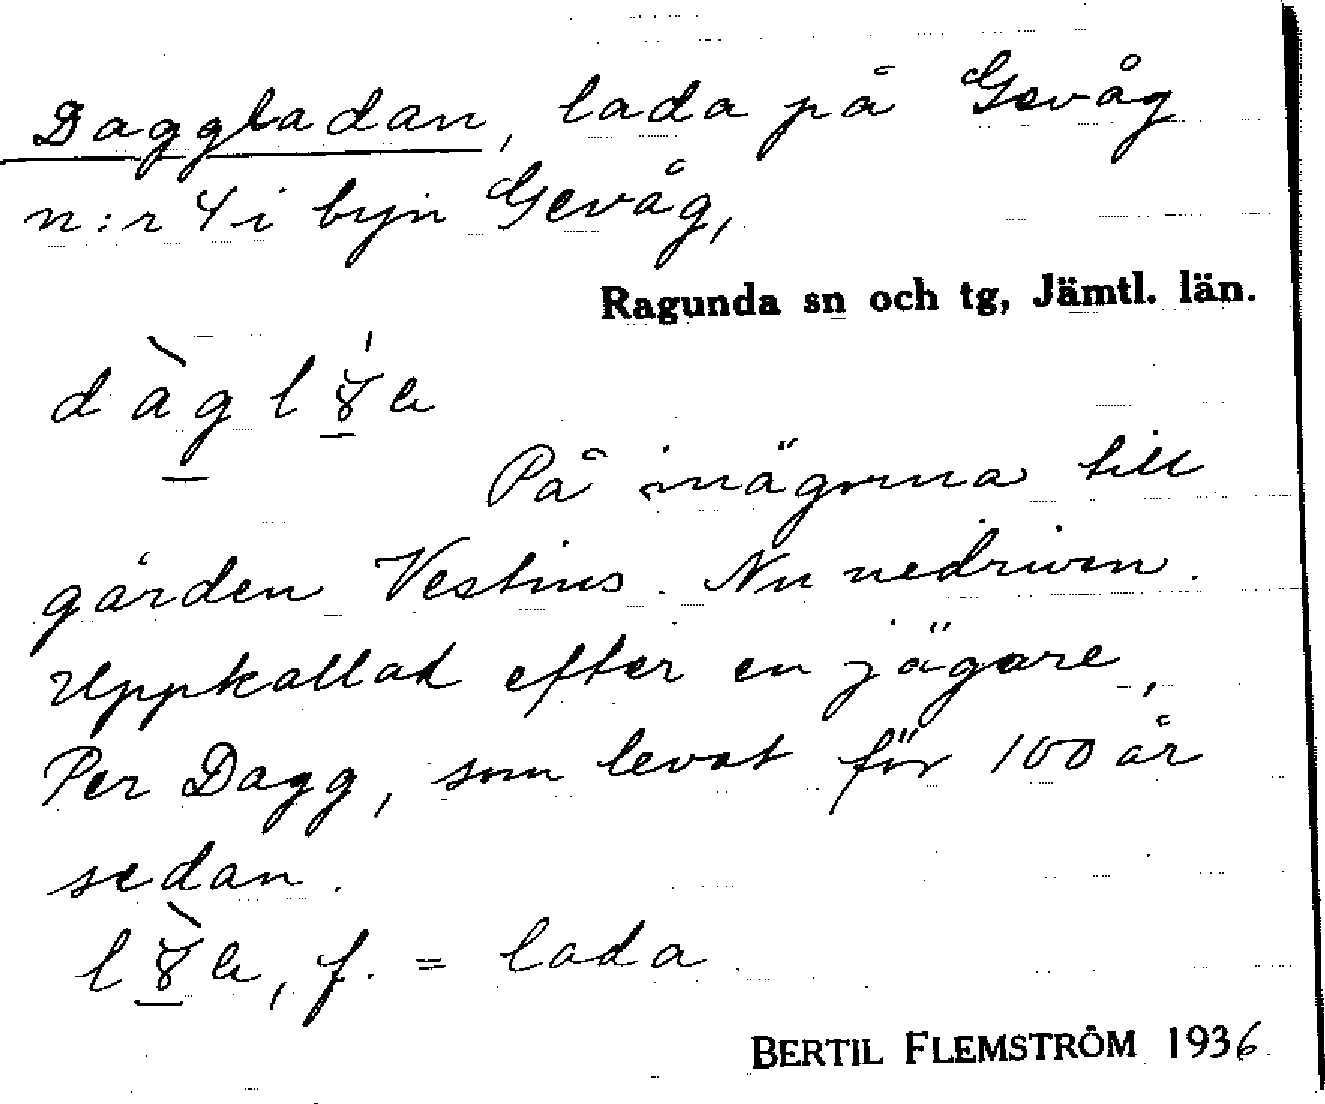 Daggladan, lada på Gevåg
n:r 4 i byn Gevåg,
Ragunda sn och tg, Jämtl. län.
På inägorna till
gården Vestins. Nu nedriven.
Uppkallad efter en jägare,
Per Dagg, som levat för 100 år
sedan.
f. = lada
BERTIL FLEMSTRÖM 1936